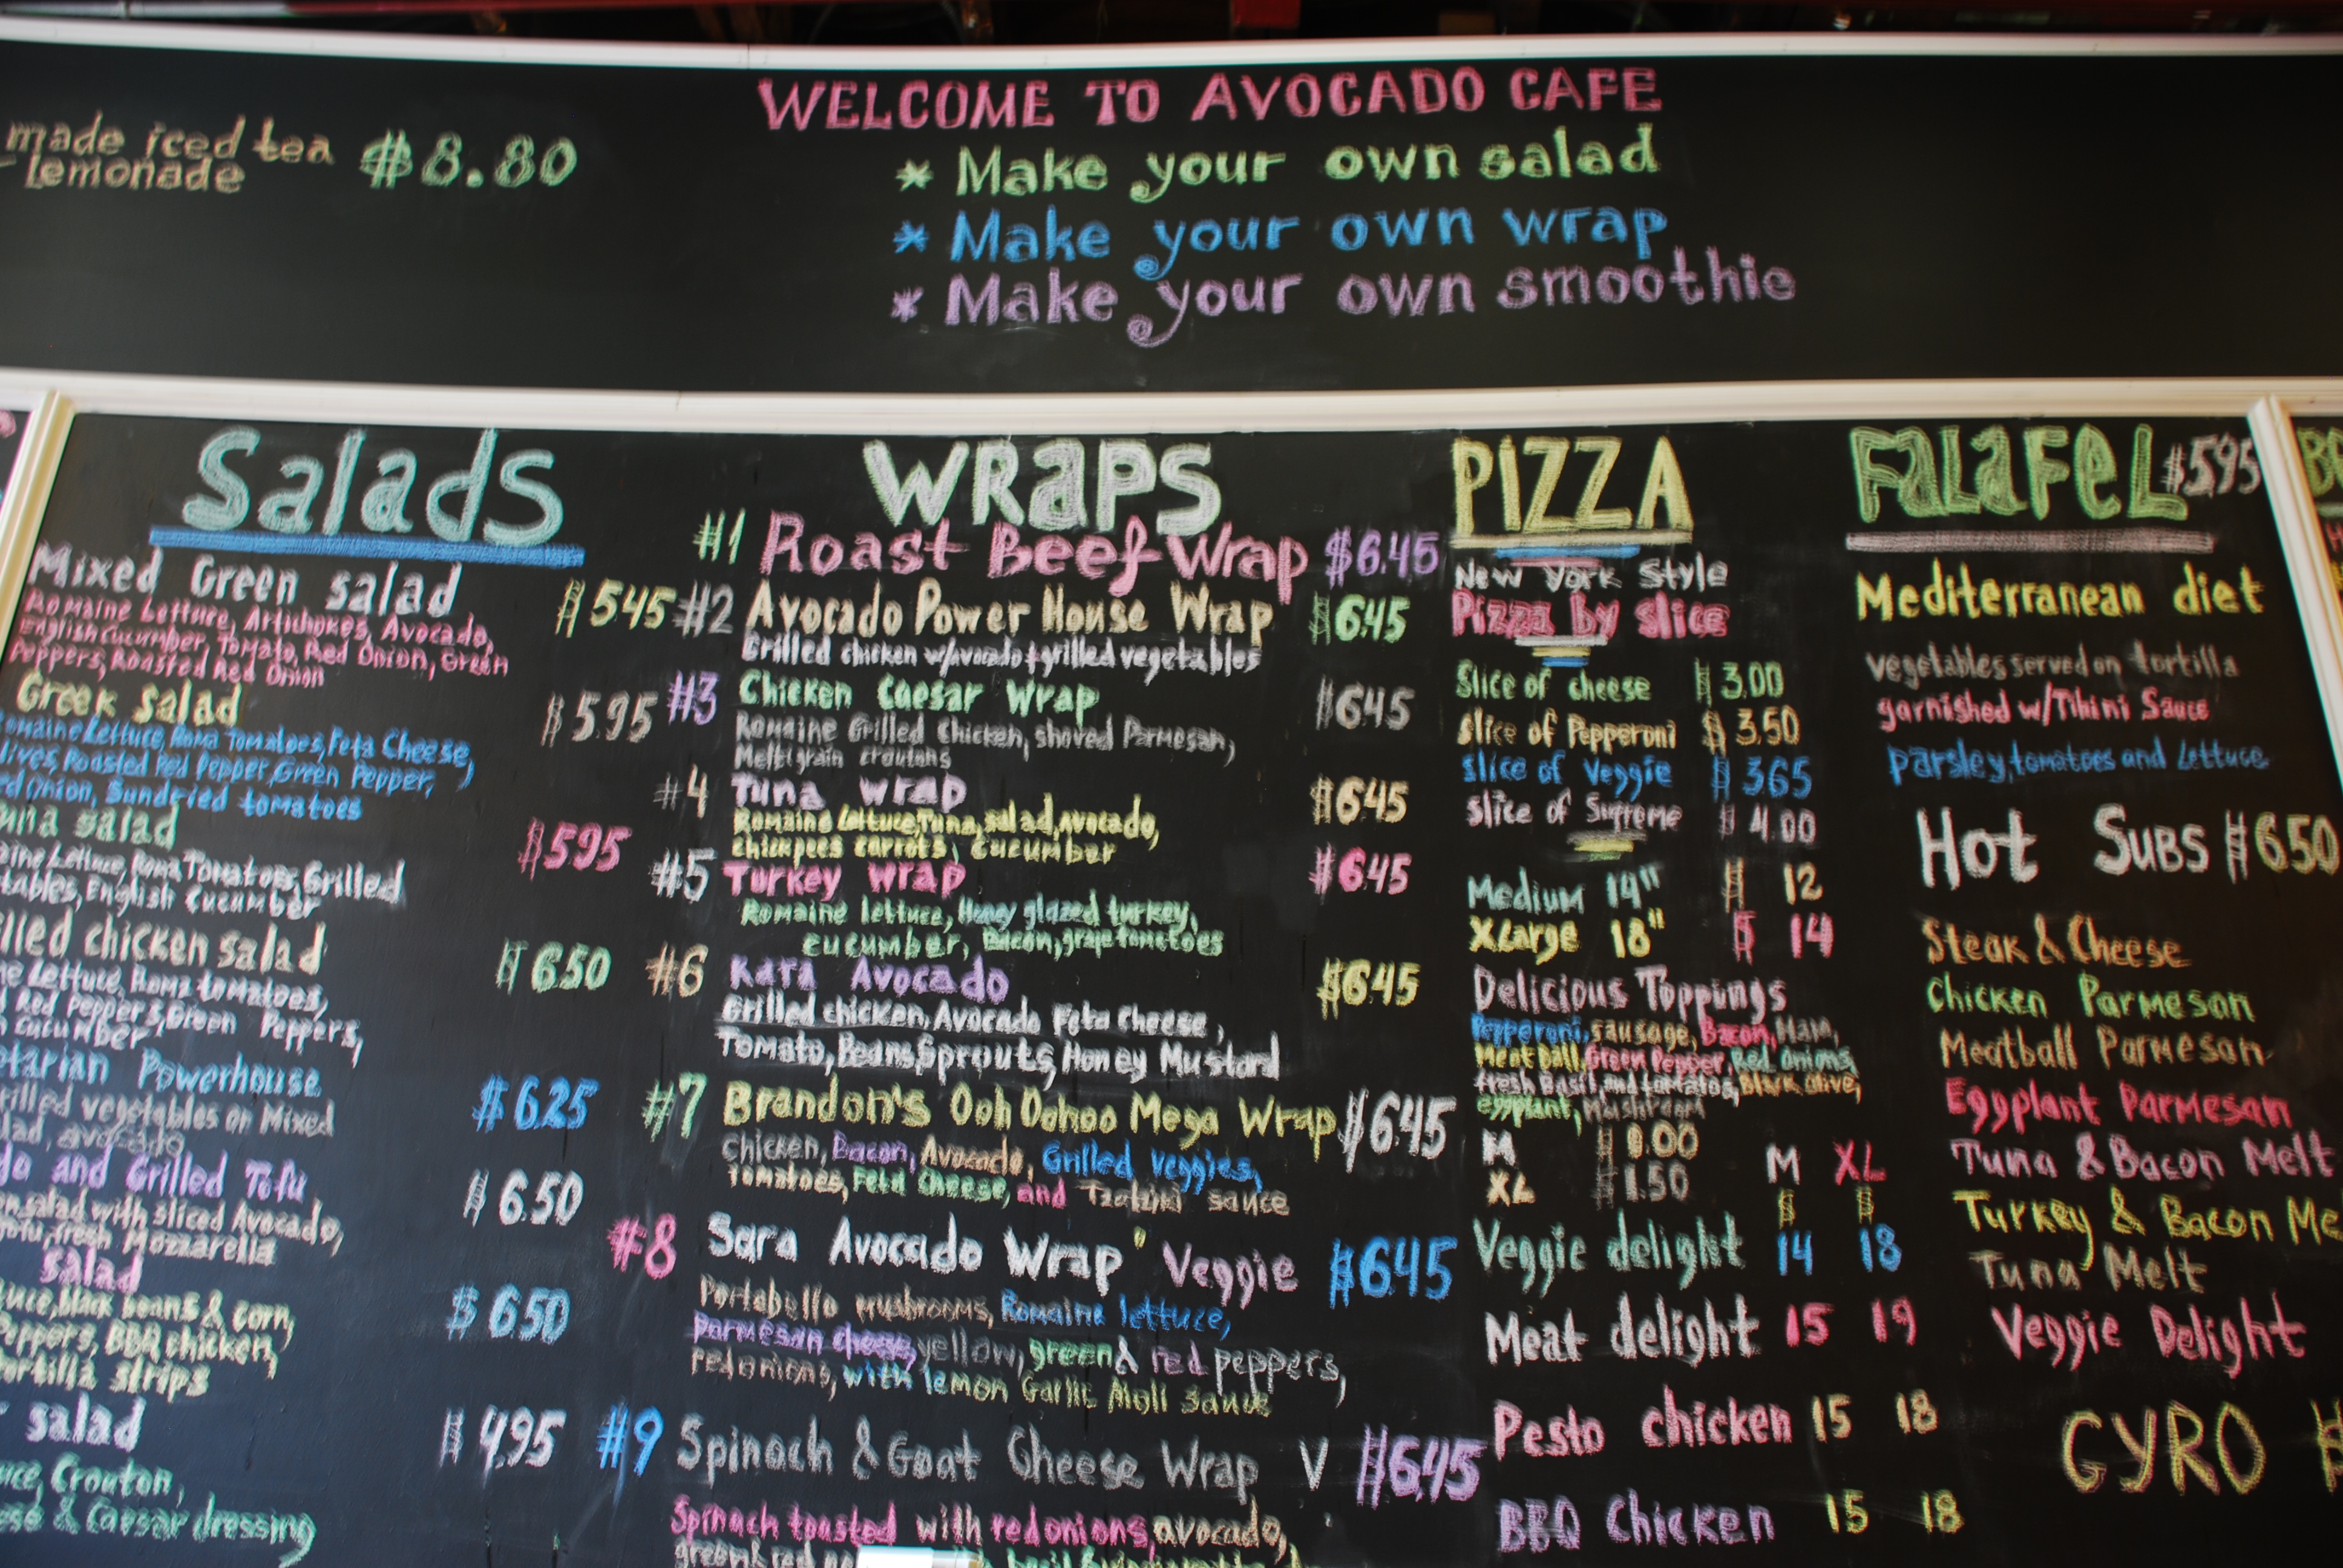 WELCOME TO AVOCADO CAFE
* Make your own salad
* Make your own wrap
* Make your own smoothie
made iced tea $8.80
lemonade
Salads
Mixed Green salad $5.45
Romaine Lettuce, Artichokes, Avocado,
English Cucumber, Tomato, Red Onion, Green
Peppers, Roasted Red Onion
Greek salad $5.95
Romaine Lettuce, Roma Tomatoes, Feta Cheese,
lives, Roasted Red Pepper, Green Pepper,
ed Onion, Sundried tomatoes
una salad $5.95
aine Lettuce, Roma Tomatoes, Grilled
tables, English Cucumber
lled chicken salad $6.50
ne Lettuce, Roma tomatoes,
Red Peppers, Green Peppers,
Cucumber
etarian Powerhouse $6.25
rilled vegetables on Mixed
lad, avocado
do and Grilled Tofu $6.50
salad with sliced Avocado,
Tofu, fresh Mozzarella
salad $6.50
tuce, black beans & corn,
Peppers, BBQ chicken,
tortilla strips
salad $4.95
uce, Crouton,
ese & Caesar dressing
WRAPS
#1 Roast Beef Wrap $6.45
#2 Avocado Power House Wrap $6.45
Grilled chicken w/avocado + grilled vegetables
#3 Chicken Caesar Wrap $6.45
Romaine Grilled Chicken, shoved Parmesan,
Meltigrain croutons
#4 Tuna wrap $6.45
Romaine Lettuce, Tuna, salad, avocado,
chickpees carrots, cucumber
#5 Turkey wrap $6.45
Romaine lettuce, Honey glazed turkey,
cucumber, Bacon, grape tomatoes
#6 Kara Avocado $6.45
Grilled chicken, Avocado Feta cheese,
Tomato, Beans, Sprouts, Honey Mustard
#7 Brandon's Ooh Oohoo Mega Wrap $6.45
Chicken, Bacon, Avocado, Grilled veggies,
Tomatoes, Feta Cheese, and Tzatziki sauce
#8 Sara Avocado Wrap Veggie $6.45
Portabello mushrooms, Romaine lettuce,
parmesan cheese, yellow, green & red peppers,
red onions, with lemon Garlic Aioli Sauce
#9 Spinach & Goat Cheese Wrap V $6.45
Spinach toasted with red onions, avocado,
PIZZA
New York Style
Pizza by slice
Slice of cheese $ 3.00
slice of Pepperoni $ 3.50
slice of Veggie $ 3.65
slice of Supreme $ 4.00
Medium 14" $ 12
XLarge 18" $ 14
Delicious Toppings
Pepperoni, sausage, Bacon, Ham,
Meatball, Green Pepper, Red Onions,
fresh Basil, and tomatos, Black olive,
eggplant, Mushroom
M
XL $1.50
M XL
$ $
Veggie delight 14 18
Meat delight 15 19
Pesto chicken 15 18
BBQ Chicken 15 18
FALAFEL $5.95
Mediterranean diet
vegetables served on tortilla
garnished w/Tihini Sauce
parsley, tomatoes and Lettuce
Hot Subs $6.50
Steak & Cheese
Chicken Parmesan
Meatball Parmesan
Eggplant Parmesan
Tuna & Bacon Melt
Turkey & Bacon Me
Tuna Melt
Veggie Delight
GYRO $